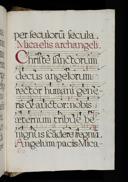 per seculorū secula.
Micaelis archangeli.
Christe sanctorum
decus angelorum
rector humani gene-
ris et auctor nobis
eternum tribue be-
nignus scādere regnū.
Angelum pacis Mica-